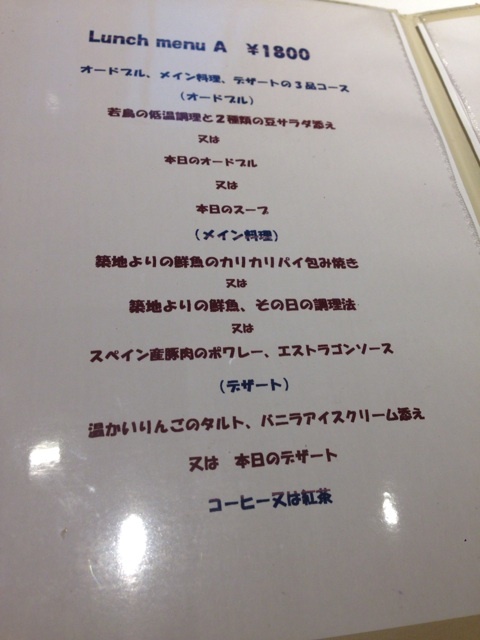 Lunch menu A ￥1800
オードブル、メイン料理、デザートの3品コース
(オードブル)
若鳥の低温調理と2種類の豆サラダ添え
又は
本日のオードブル
又は
本日のスープ
(メイン料理)
築地よりの鮮魚のカリカリパイ包み焼き
又は
築地よりの鮮魚、その日の調理法
又は
スペイン産豚肉のポワレー、エストラゴンソース
(デザート)
温かいりんごのタルト、バニラアイスクリーム添え
又は 本日のデザート
コーヒー又は紅茶